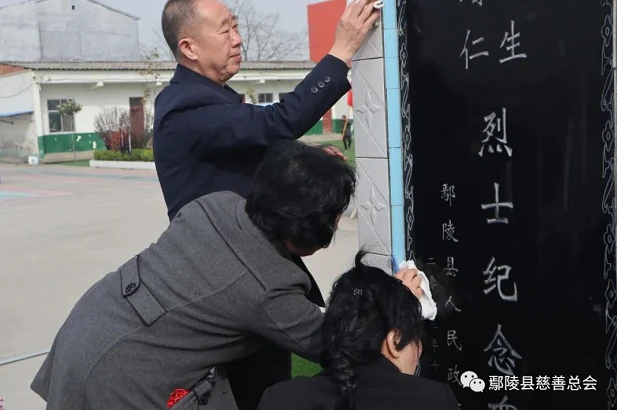 生
仁
烈士纪念
鄢陵县人民政
鄢陵县慈善总会